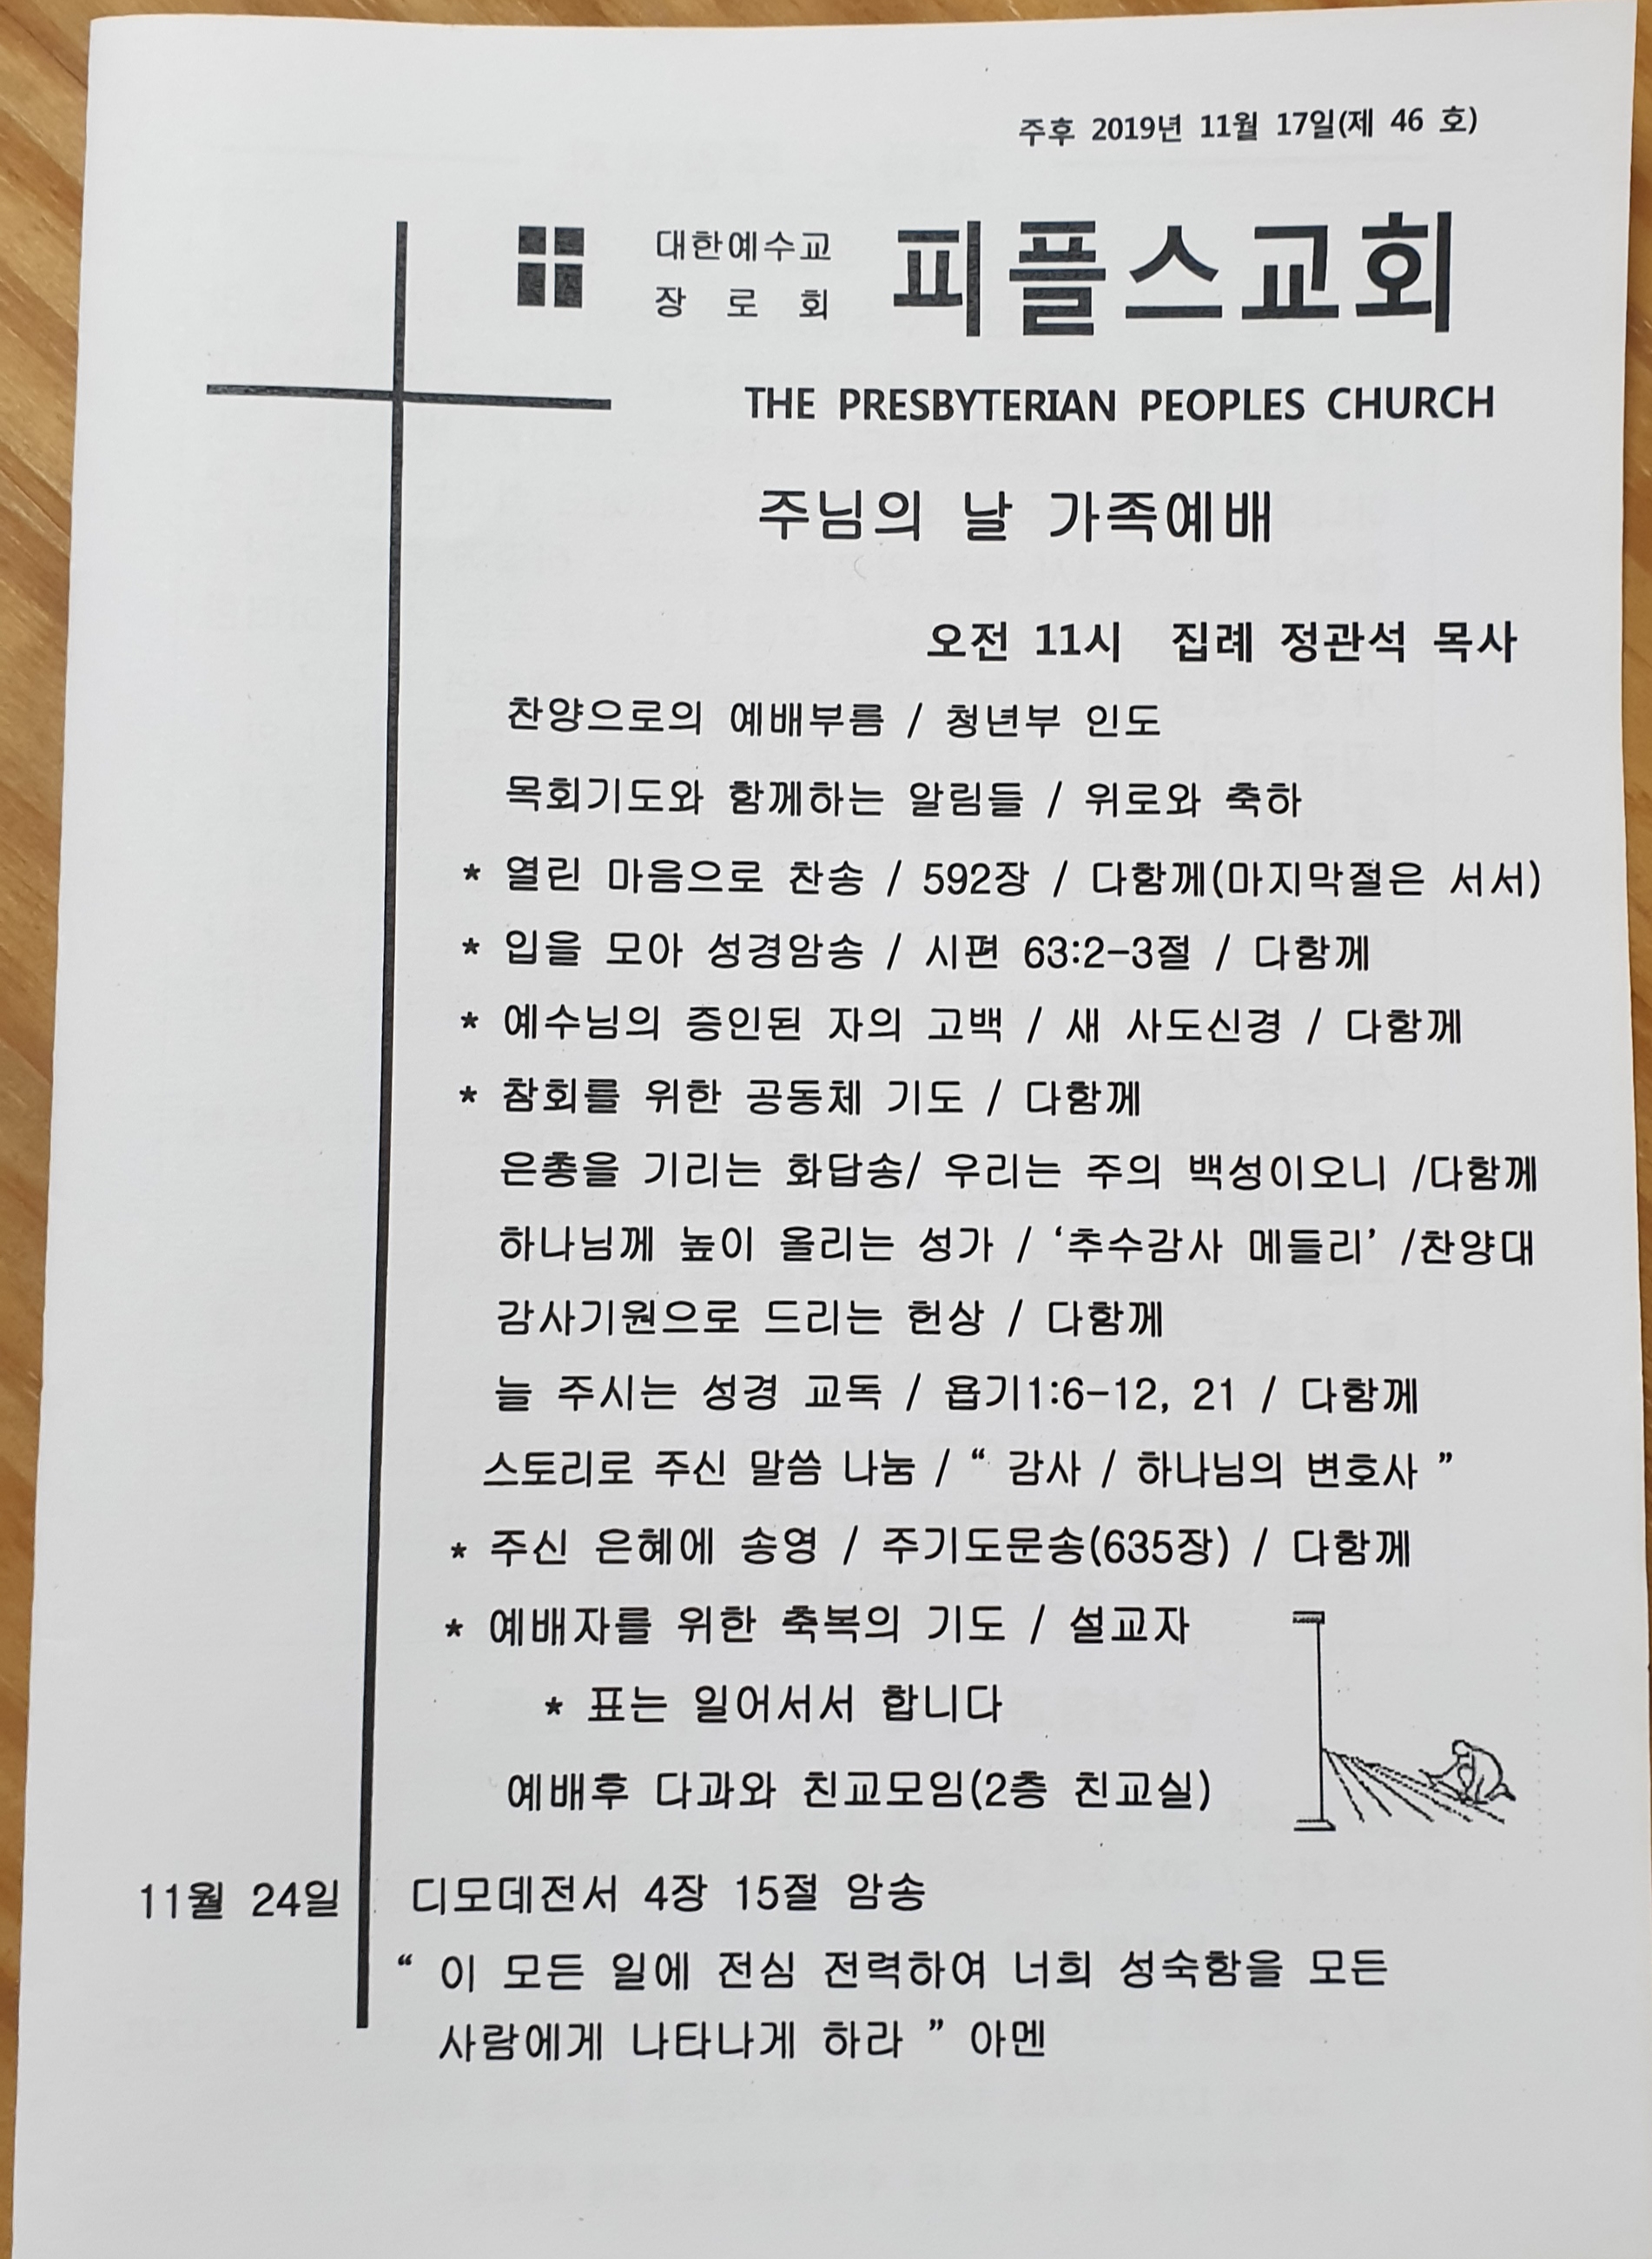 주후 2019년 11월 17일(제 46 호)
대한예수교
장 로 회
피플스교회
THE PRESBYTERIAN PEOPLES CHURCH
주님의 날 가족예배
오전 11시 집례 정관석 목사
찬양으로의 예배부름 / 청년부 인도
목회기도와 함께하는 알림들 / 위로와 축하
* 열린 마음으로 찬송 / 592장 / 다함께(마지막절은 서서)
* 입을 모아 성경암송 / 시편 63:2-3절 / 다함께
* 예수님의 증인된 자의 고백 / 새 사도신경 / 다함께
* 참회를 위한 공동체 기도 / 다함께
은총을 기리는 화답송/ 우리는 주의 백성이오니 /다함께
하나님께 높이 올리는 성가 / ‘추수감사 메들리’ /찬양대
감사기원으로 드리는 헌상 / 다함께
늘 주시는 성경 교독 / 욥기1:6-12, 21 / 다함께
스토리로 주신 말씀 나눔 / “ 감사 / 하나님의 변호사 ”
* 주신 은혜에 송영 / 주기도문송(635장) / 다함께
* 예배자를 위한 축복의 기도 / 설교자
* 표는 일어서서 합니다
예배후 다과와 친교모임(2층 친교실)
11월 24일 디모데전서 4장 15절 암송
“ 이 모든 일에 전심 전력하여 너희 성숙함을 모든
사람에게 나타나게 하라 ” 아멘